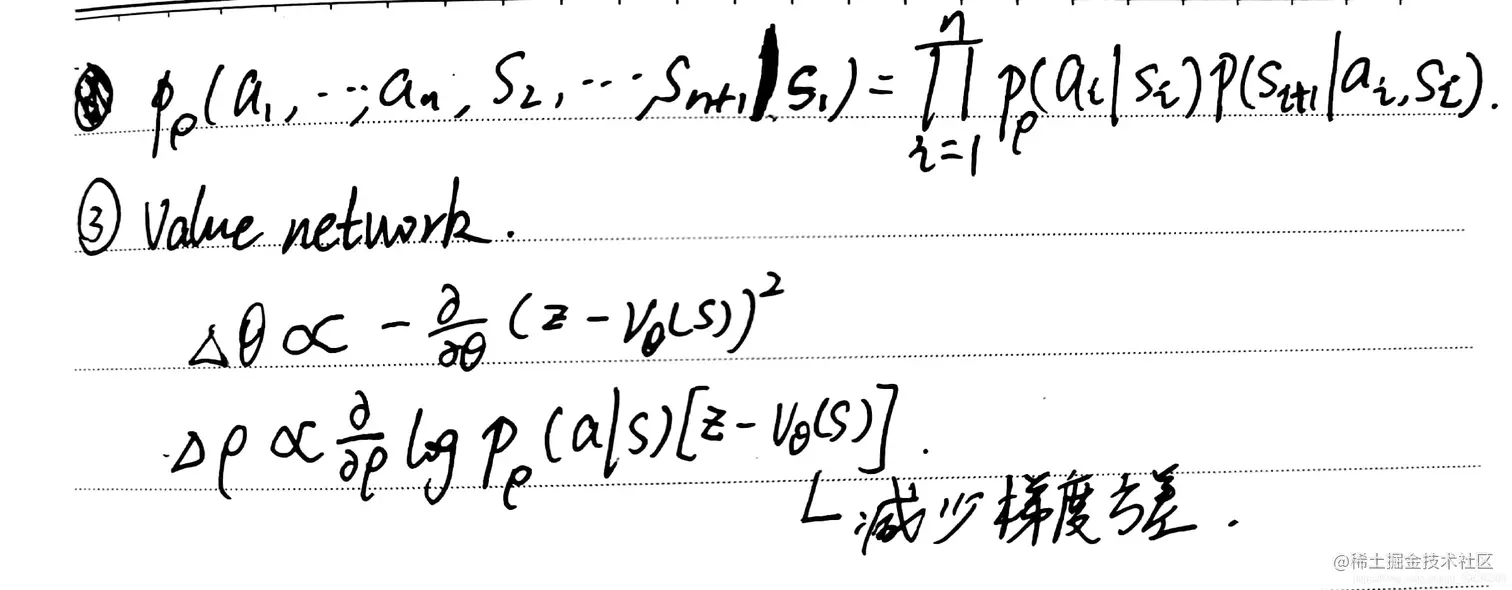 p_ρ(a₁, ⋯, aₙ, S₂, ⋯, Sₙ₊₁ | S₁) = ∏ᵢ₌₁ⁿ p_ρ(aᵢ|sᵢ) p(sᵢ₊₁|aᵢ, sᵢ).
③ Value network.
Δθ ∝ - ∂/∂θ (z - V_θ(s))²
Δρ ∝ ∂/∂ρ log p_ρ(a|s)[z - V_θ(s)].
减少梯度方差.
@稀土掘金技术社区